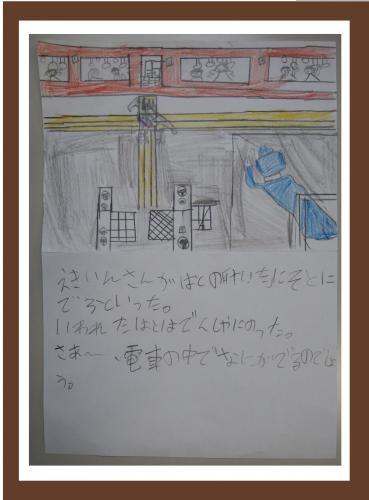 えきいんさんがはとの叶いたにそとに
でろといった。
いわれたはとはでんしゃにのった。
さあ〜、電車の中でなにがでるのでしょ
う。